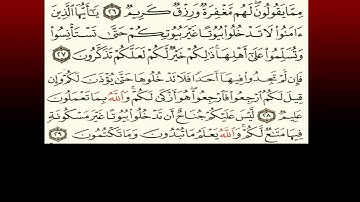 مِمَّا يَقُولُونَ ۖ لَهُم مَّغْفِرَةٌ وَرِزْقٌ كَرِيمٌ ٢٦ يَـٰٓأَيُّهَا ٱلَّذِينَ
ءَامَنُوا۟ لَا تَدْخُلُوا۟ بُيُوتًا غَيْرَ بُيُوتِكُمْ حَتَّىٰ تَسْتَأْنِسُوا۟
وَتُسَلِّمُوا۟ عَلَىٰٓ أَهْلِهَا ۚ ذَٰلِكُمْ خَيْرٌ لَّكُمْ لَعَلَّكُمْ تَذَكَّرُونَ ٢٧
فَإِن لَّمْ تَجِدُوا۟ فِيهَآ أَحَدًا فَلَا تَدْخُلُوهَا حَتَّىٰ يُؤْذَنَ لَكُمْ ۖ وَإِن
قِيلَ لَكُمُ ٱرْجِعُوا۟ فَٱرْجِعُوا۟ ۖ هُوَ أَزْكَىٰ لَكُمْ ۚ وَٱللَّهُ بِمَا تَعْمَلُونَ
عَلِيمٌ ٢٨ لَّيْسَ عَلَيْكُمْ جُنَاحٌ أَن تَدْخُلُوا۟ بُيُوتًا غَيْرَ مَسْكُونَةٍ
فِيهَا مَتَـٰعٌ لَّكُمْ ۚ وَٱللَّهُ يَعْلَمُ مَا تُبْدُونَ وَمَا تَكْتُمُونَ ٢٩